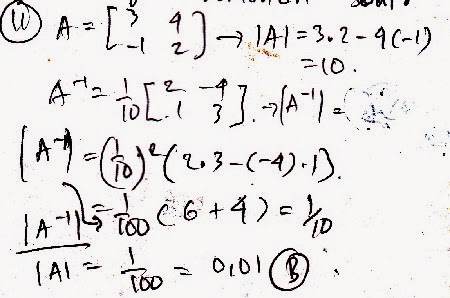 (10) A = [3 4
-1 2] → |A| = 3.2 - 4(-1)
= 10.
A⁻¹ = 1/10 [2 -4
1 3] . → |A⁻¹| =
|A⁻¹| = (1/10)² (2.3 - (-4).1).
|A⁻¹| = 1/100 (6 + 4) = 1/10
|A⁻¹|/|A| = 1/100 = 0,01 (B)